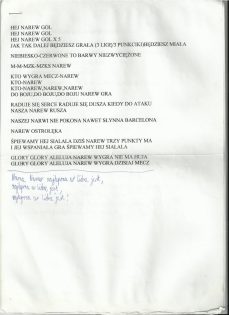 HEJ NAREW GOL
HEJ NAREW GOL
HEJ NAREW GOL X 5
JAK TAK DALEJ BĘDZIESZ GRAŁA (3 LIGĘ/3 PUNKCIKI)BĘDZIESZ MIAŁA
NIEBIESKO-CZERWONE TO BARWY NIEZWYCIĘŻONE
M-M-MZK-MZKS NAREW
KTO WYGRA MECZ-NAREW
KTO-NAREW
KTO-NAREW,NAREW,NAREW
DO BOJU,DO BOJU,DO BOJU NAREW GRA
RADUJE SIĘ SERCE RADUJE SIĘ DUSZA KIEDY DO ATAKU
NASZA NAREW RUSZA
NASZEJ NARWI NIE POKONA NAWET SŁYNNA BARCELONA
NAREW OSTROŁĘKA
ŚPIEWAMY HEJ SIALALA DZIŚ NAREW TRZY PUNKTY MA
I JEJ WSPANIAŁA GRA ŚPIEWAMY HEJ SIALALA
GLORY GLORY ALELUJA NAREW WYGRA NIE MA
GLORY GLORY ALELUJA NAREW WYGRA DZISIAJ MECZ
Narew najlepsza w lidze jest,
najlepsza w lidze jest,
najlepsza w lidze jest!